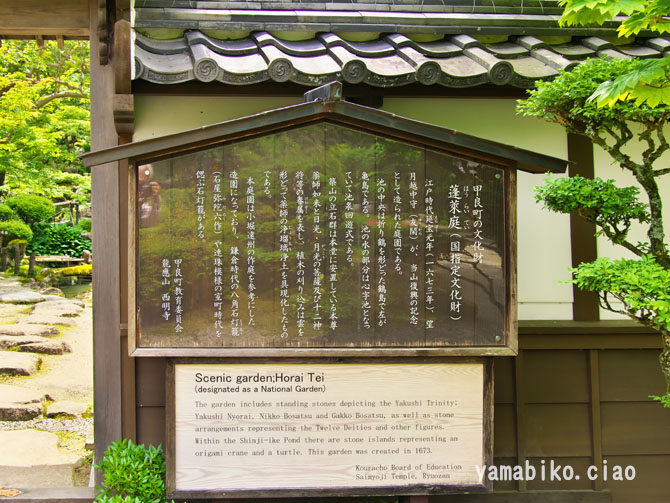 甲良町の文化財
ほうらいてい
蓬莱庭(国指定文化財)
江戸時代延宝元年(一六七三年)、望
月越中守(友閑)が、当山復興の記念
として造られた庭園である。
池の中央は折り鶴を形どった鶴島で左が
亀島である。池の水の部分は心字池となっ
ていて池泉回遊式である。
築山の立石群は本堂に安置している本尊
薬師如来と日光、月光の菩薩及び十二神
将等の眷属を表し、植木の刈り込みは雲を
形どって薬師の浄瑠璃浄土を具現化したもの
である。
本庭園は小堀遠州の作庭を参考にした
造園になっており、鎌倉時代の八角石灯籠
(石屋弥六作)や連珠模様の室町時代を
偲ぶ石灯籠がある。
甲良町教育委員会
龍應山 西明寺
Scenic garden;Horai Tei
(designated as a National Garden)
The garden includes standing stones depicting the Yakushi Trinity;
Yakushi Nyorai, Nikko Bosatsu and Gakko Bosatsu, as well as stone
arrangements representing the Twelve Deities and other figures.
Within the Shinji-ike Pond there are stone islands representing an
origami crane and a turtle. This garden was created in 1673.
Kouracho Board of Education
Saimyoji Temple, Ryuozan
yamabiko.ciao